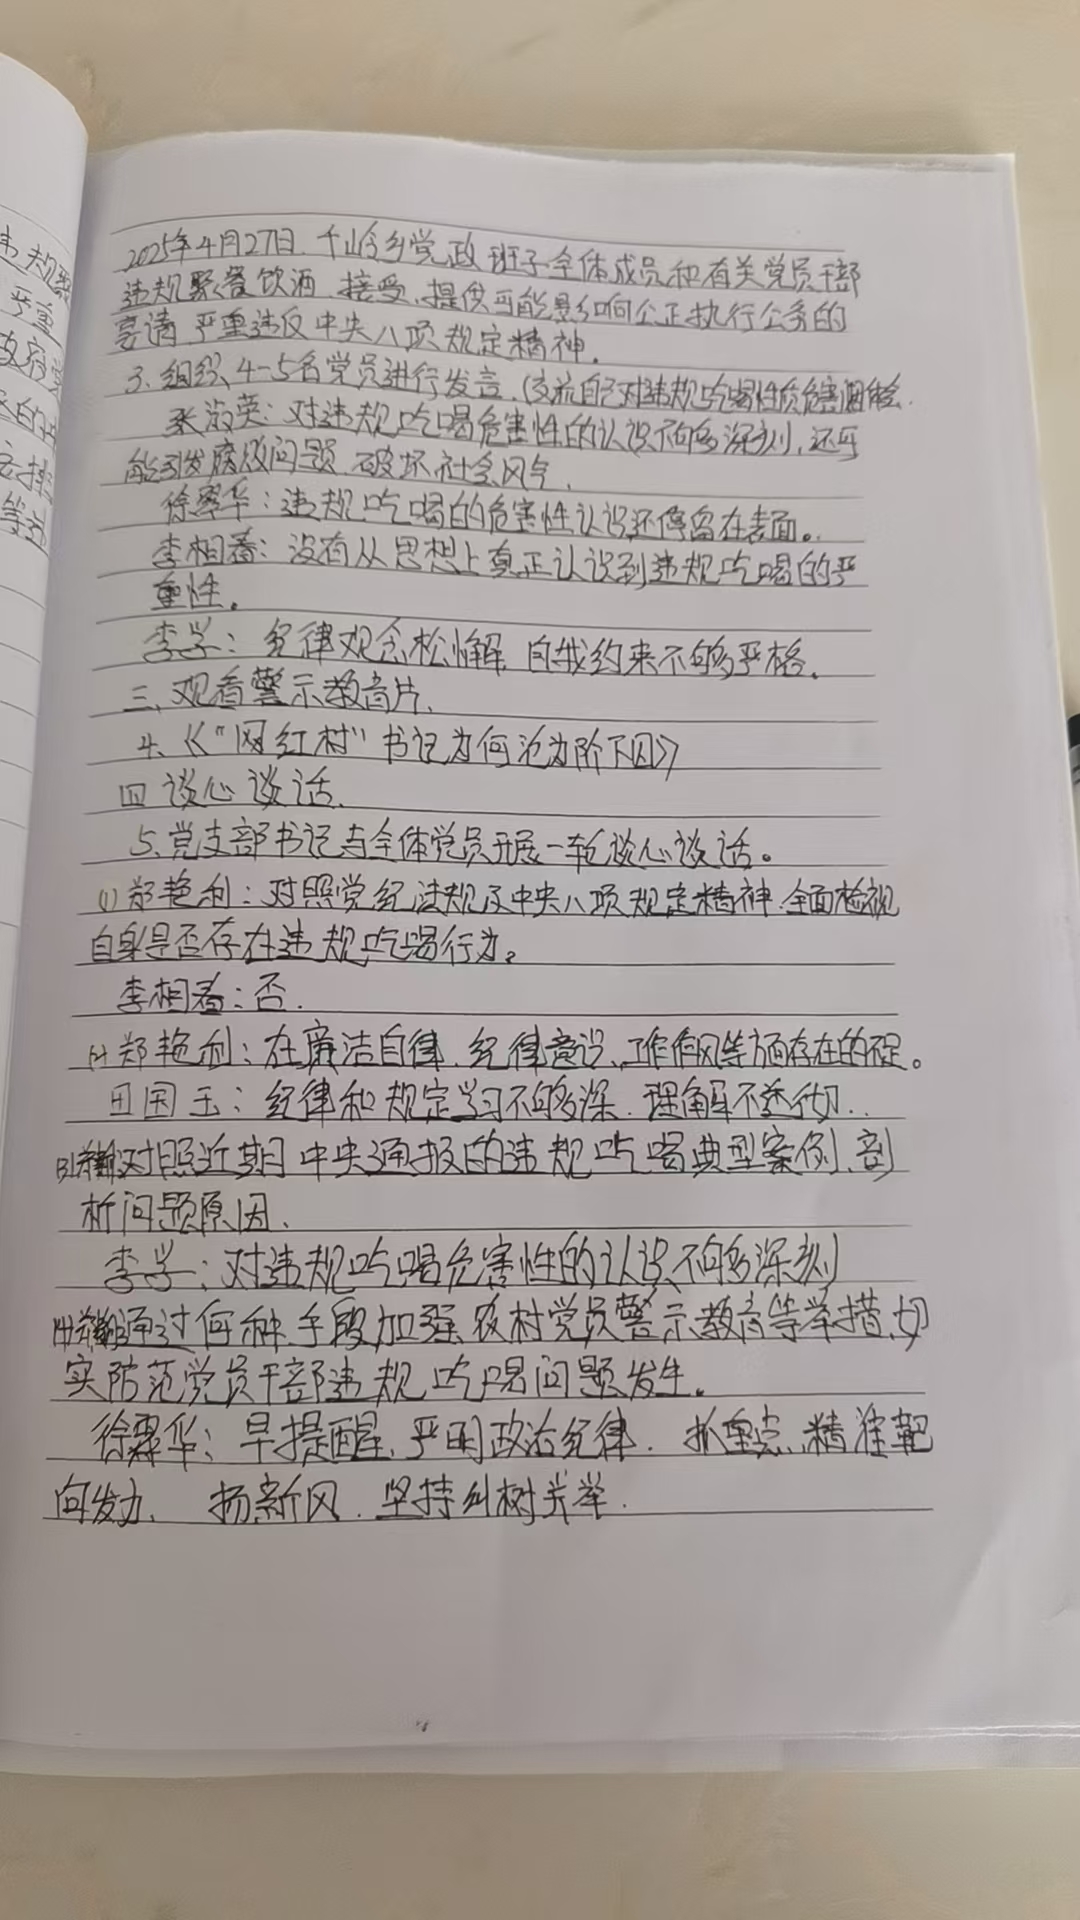 2025年4月27日、千岭乡党政班子全体成员和有关党员干部
违规聚餐饮酒、接受、提供可能影响公正执行公务的
宴请 严重违反中央八项规定精神.
3、组织4-5名党员进行发言、(交流自己对违规吃喝性质危害
张淑英:对违规吃喝危害性的认识不够深刻,还可
能引发腐败问题 破坏社会风气.
徐翠华:违规吃喝的危害性认识还停留在表面。
李相春:没有从思想上真正认识到违规吃喝的严
重性。
李学:纪律观念松懈 自我约束不够严格.
三、观看警示教育片.
4、《"网红村"书记为何沦为阶下囚》
四 谈心谈话.
5、党支部书记与全体党员开展一轮谈心谈话。
(1)郑艳利:对照党纪法规及中央八项规定精神 全面检视
自身是否存在违规吃喝行为。
李相春:否.
(2)郑艳利:在廉洁自律、纪律意识、工作作风等方面存在的不足。
田国玉:纪律和规定学习不够深、理解不透彻..
(3) 对照近期中央通报的违规吃喝典型案例、剖
析问题原因.
李学:对违规吃喝危害性的认识不够深刻
(4) 通过何种手段加强农村党员警示教育等举措,切
实防范党员干部违规吃喝问题发生.
徐翠华:早提醒、严明政治纪律. 抓重点、精准靶
向发力、 扬新风.坚持纠树并举.
违规聚
严重
政府党
等